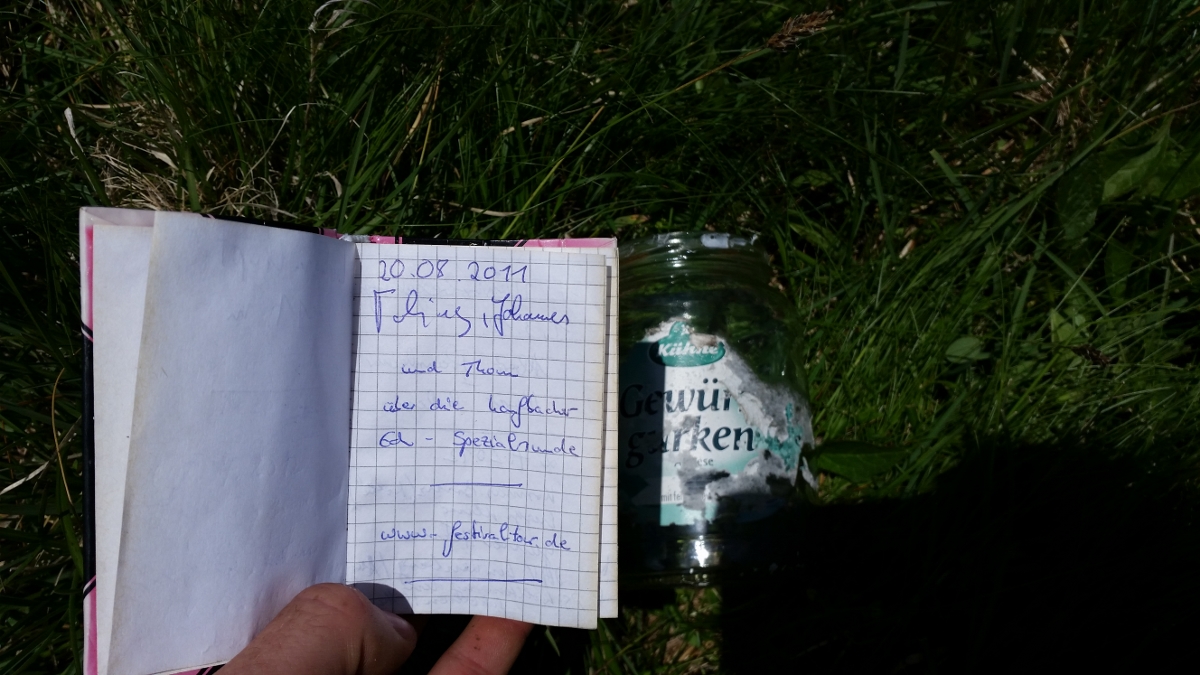 20.08.2011
Johannes
und Thom
über die
Eck - Spezialrunde
www.festivaltour.de
Kühne
Gewür
gurken